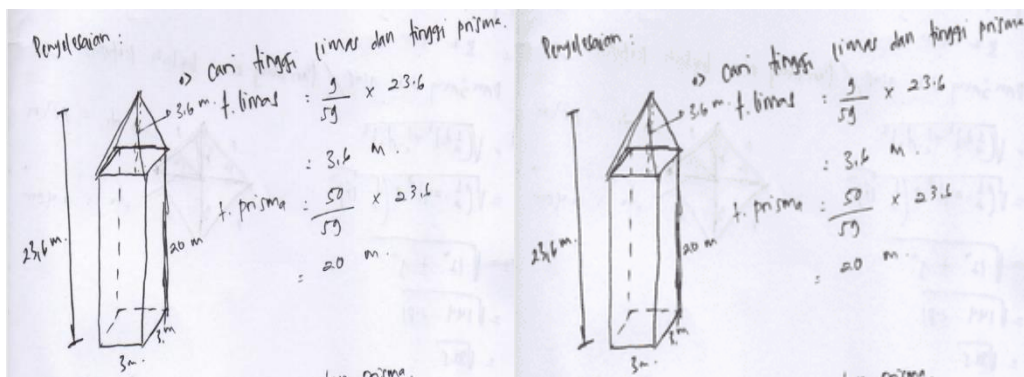 Penyelesaian :
•) Cari tinggi limas dan tinggi prisma.
t. limas = 9/59 × 23.6
= 3,6 m.
t. prisma = 50/59 × 23.6
= 20 m.
3.6 m.
23,6 m.
20 m
3 m
3 m.
prisma.
Penyelesaian :
•) Cari tinggi limas dan tinggi prisma.
t. limas = 9/59 × 23.6
= 3,6 m.
t. prisma = 50/59 × 23.6
= 20 m.
3.6 m.
23,6 m.
20 m
3 m
3 m.
prisma.